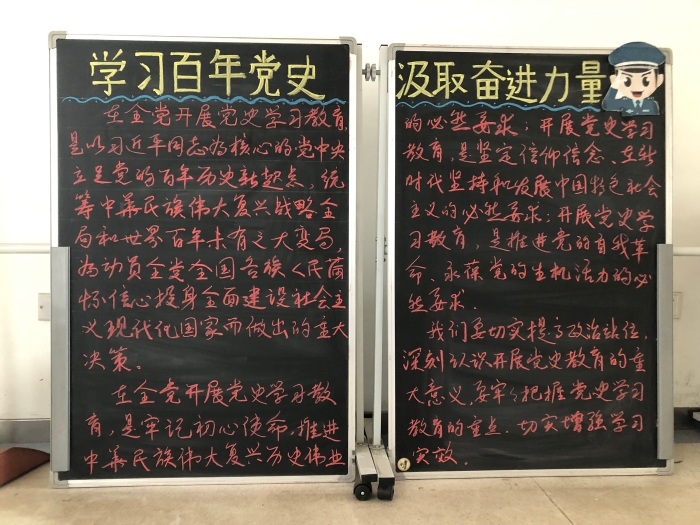 学习百年党史
在全党开展党史学习教育,
是以习近平同志为核心的党中央
立足党的百年历史新起点、统
筹中华民族伟大复兴战略全
局和世界百年未有之大变局,
为动员全党全国各族人民满
怀信心投身全面建设社会主
义现代化国家而做出的重大
决策。
在全党开展党史学习教
育,是牢记初心使命,推进
中华民族伟大复兴历史伟业
汲取奋进力量
的必然要求;开展党史学习
教育,是坚定信仰信念、在新
时代坚持和发展中国特色社会
主义的必然要求;开展党史学
习教育,是推进党的自我革
命、永葆党的生机活力的必
然要求.
我们要切实提高政治站位,
深刻认识开展党史教育的重
大意义,要牢牢把握党史学习
教育的重点.切实增强学习
实效.